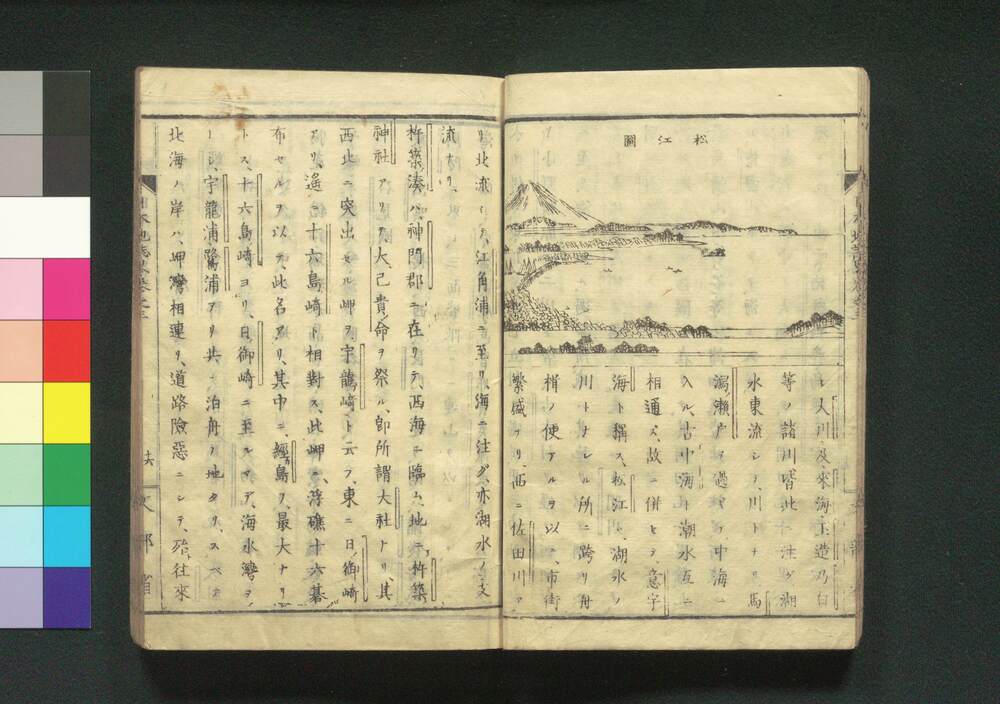 松江圖
ノ入川及來海玉造乃白
等ノ諸川皆此ニ注グ湖
水東流シテ、川トナリ、馬
潟瀬戸ヲ過ギテ、中海ニ
入ル、古中海ト潮水互ニ
相通ズ、故ニ併セテ意宇
海ト稱ス、松江ハ、湖水ノ
川トナレル所ニ跨リ舟
楫ノ便アルヲ以テ、市街
繁盛ナリ、西ニ佐田川ア
リ、北流シテ、江角浦ニ至リ、海ニ注グ、亦湖水ノ支
流ナリ、
杵築湊ハ、神門郡ニ在リテ、西海ニ臨ム、地ニ杵築
神社アリテ、大己貴命ヲ祭ル、即所謂大社ナリ、其
西北ニ突出セル岬ヲ宇龍崎ト云フ、東ニ日御崎
アリ、遙ニ十六島崎ト相對ス、此岬ニ、浮礁十六碁
布セルヲ以テ、此名アリ、其中ニ、經島ヲ、最大ナリ
トス、十六島崎ヨリ、日御崎ニ至ルマデ、海水灣ヲ
ナシ、宇龍浦鷺浦アリ、共ニ泊舟ノ地タリ、スベテ
北海ノ岸ハ、岬灣相連リ、道路險惡ニシテ、殆往來
文部省